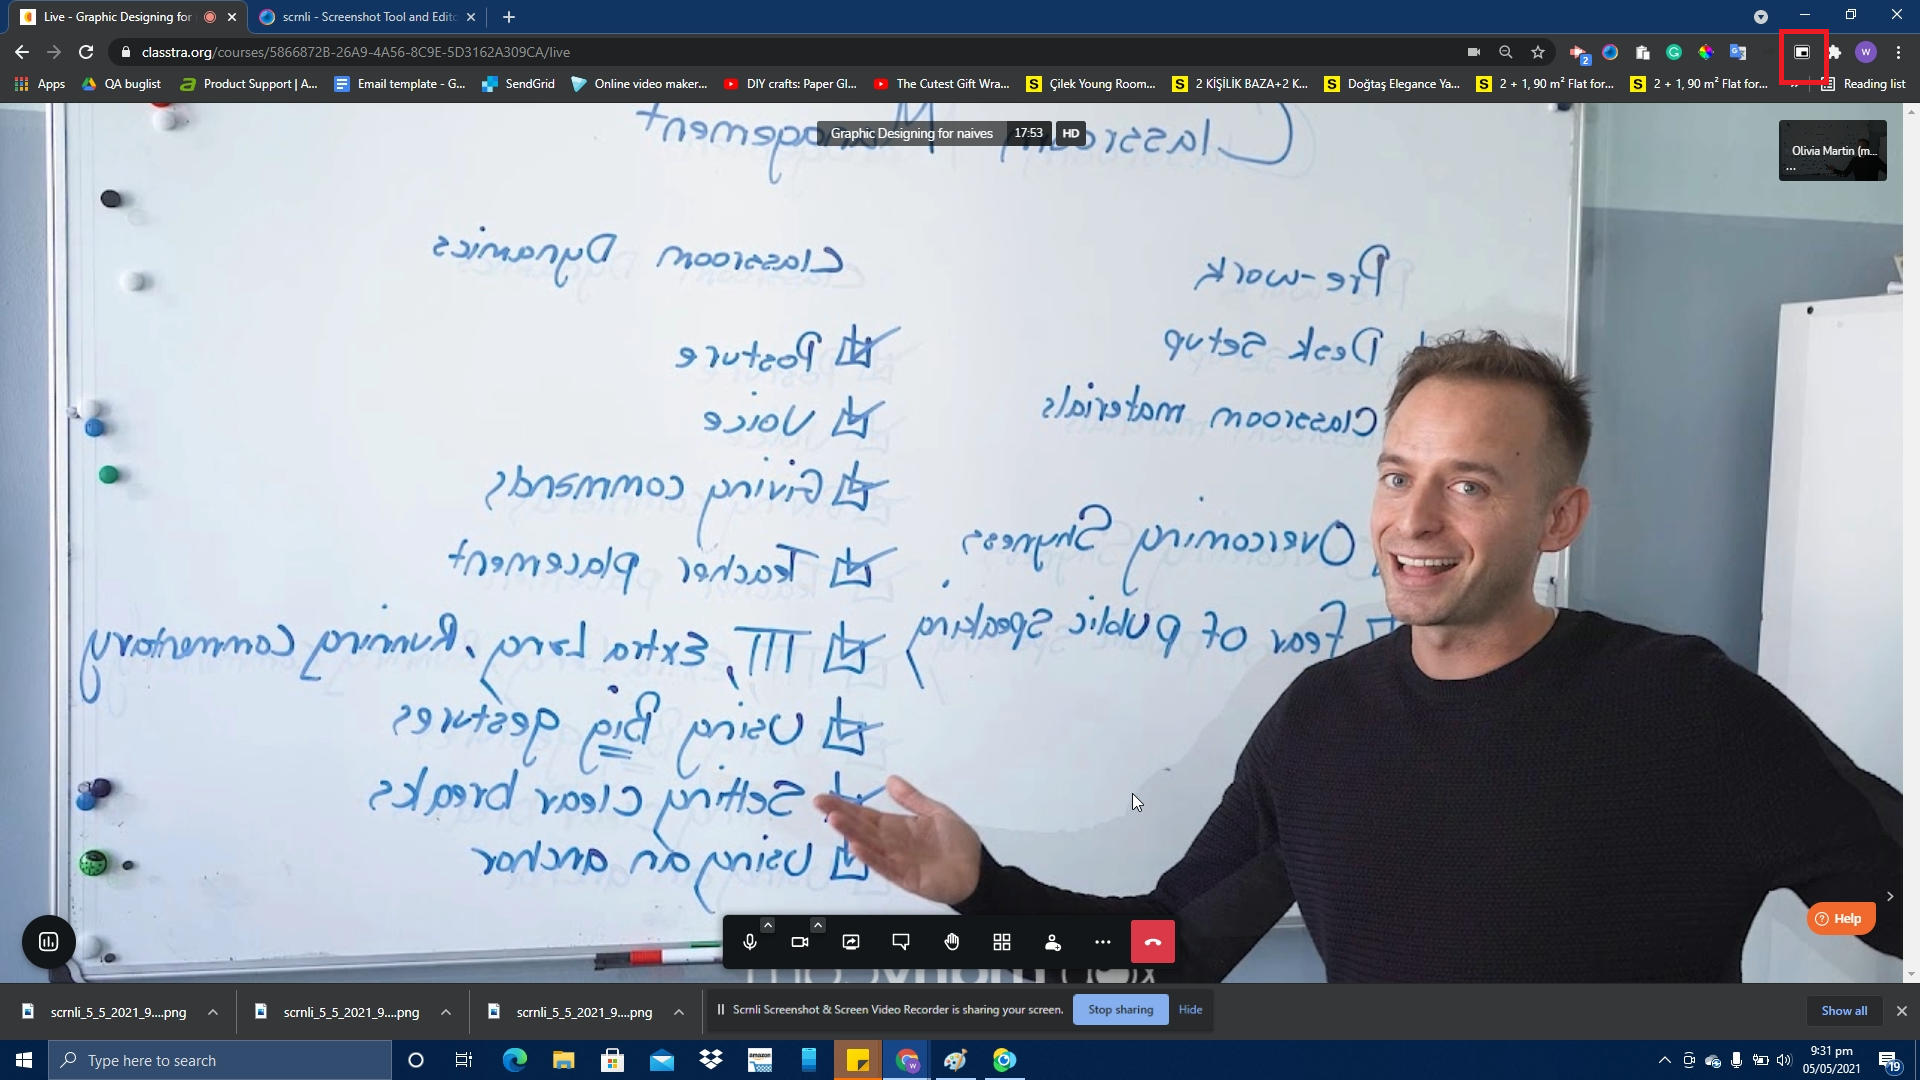 Live - Graphic Designing for
scrnli - Screenshot Tool and Edito
classtra.org/courses/5866872B-26A9-4A56-8C9E-5D3162A309CA/live
2
W
Apps
QA buglist
Product Support | A...
Email template - G...
SendGrid
Online video maker...
DIY crafts: Paper Gl...
The Cutest Gift Wra...
Çilek Young Room...
2 KİŞİLİK BAZA+2 K...
Doğtaş Elegance Ya...
2 + 1, 90 m² Flat for...
2 + 1, 90 m² Flat for...
Reading list
Graphic Designing for naives 17:53 HD
Olivia Martin (m...
...
Classroom Management
Pre-work
Desk Setup
Classroom materials
Overcoming Shyness
Fear of public speaking
Classroom Dynamics
Posture
Voice
Giving commands
Teacher placement
TTT, Extra Lang, Running Commentary
Using Big gestures
Setting clear breaks
Using an anchor
Help
scrnli_5_5_2021_9....png
scrnli_5_5_2021_9....png
scrnli_5_5_2021_9....png
Scrnli Screenshot & Screen Video Recorder is sharing your screen.
Stop sharing
Hide
Show all
Type here to search
amazon
W
9:31 pm
05/05/2021
19